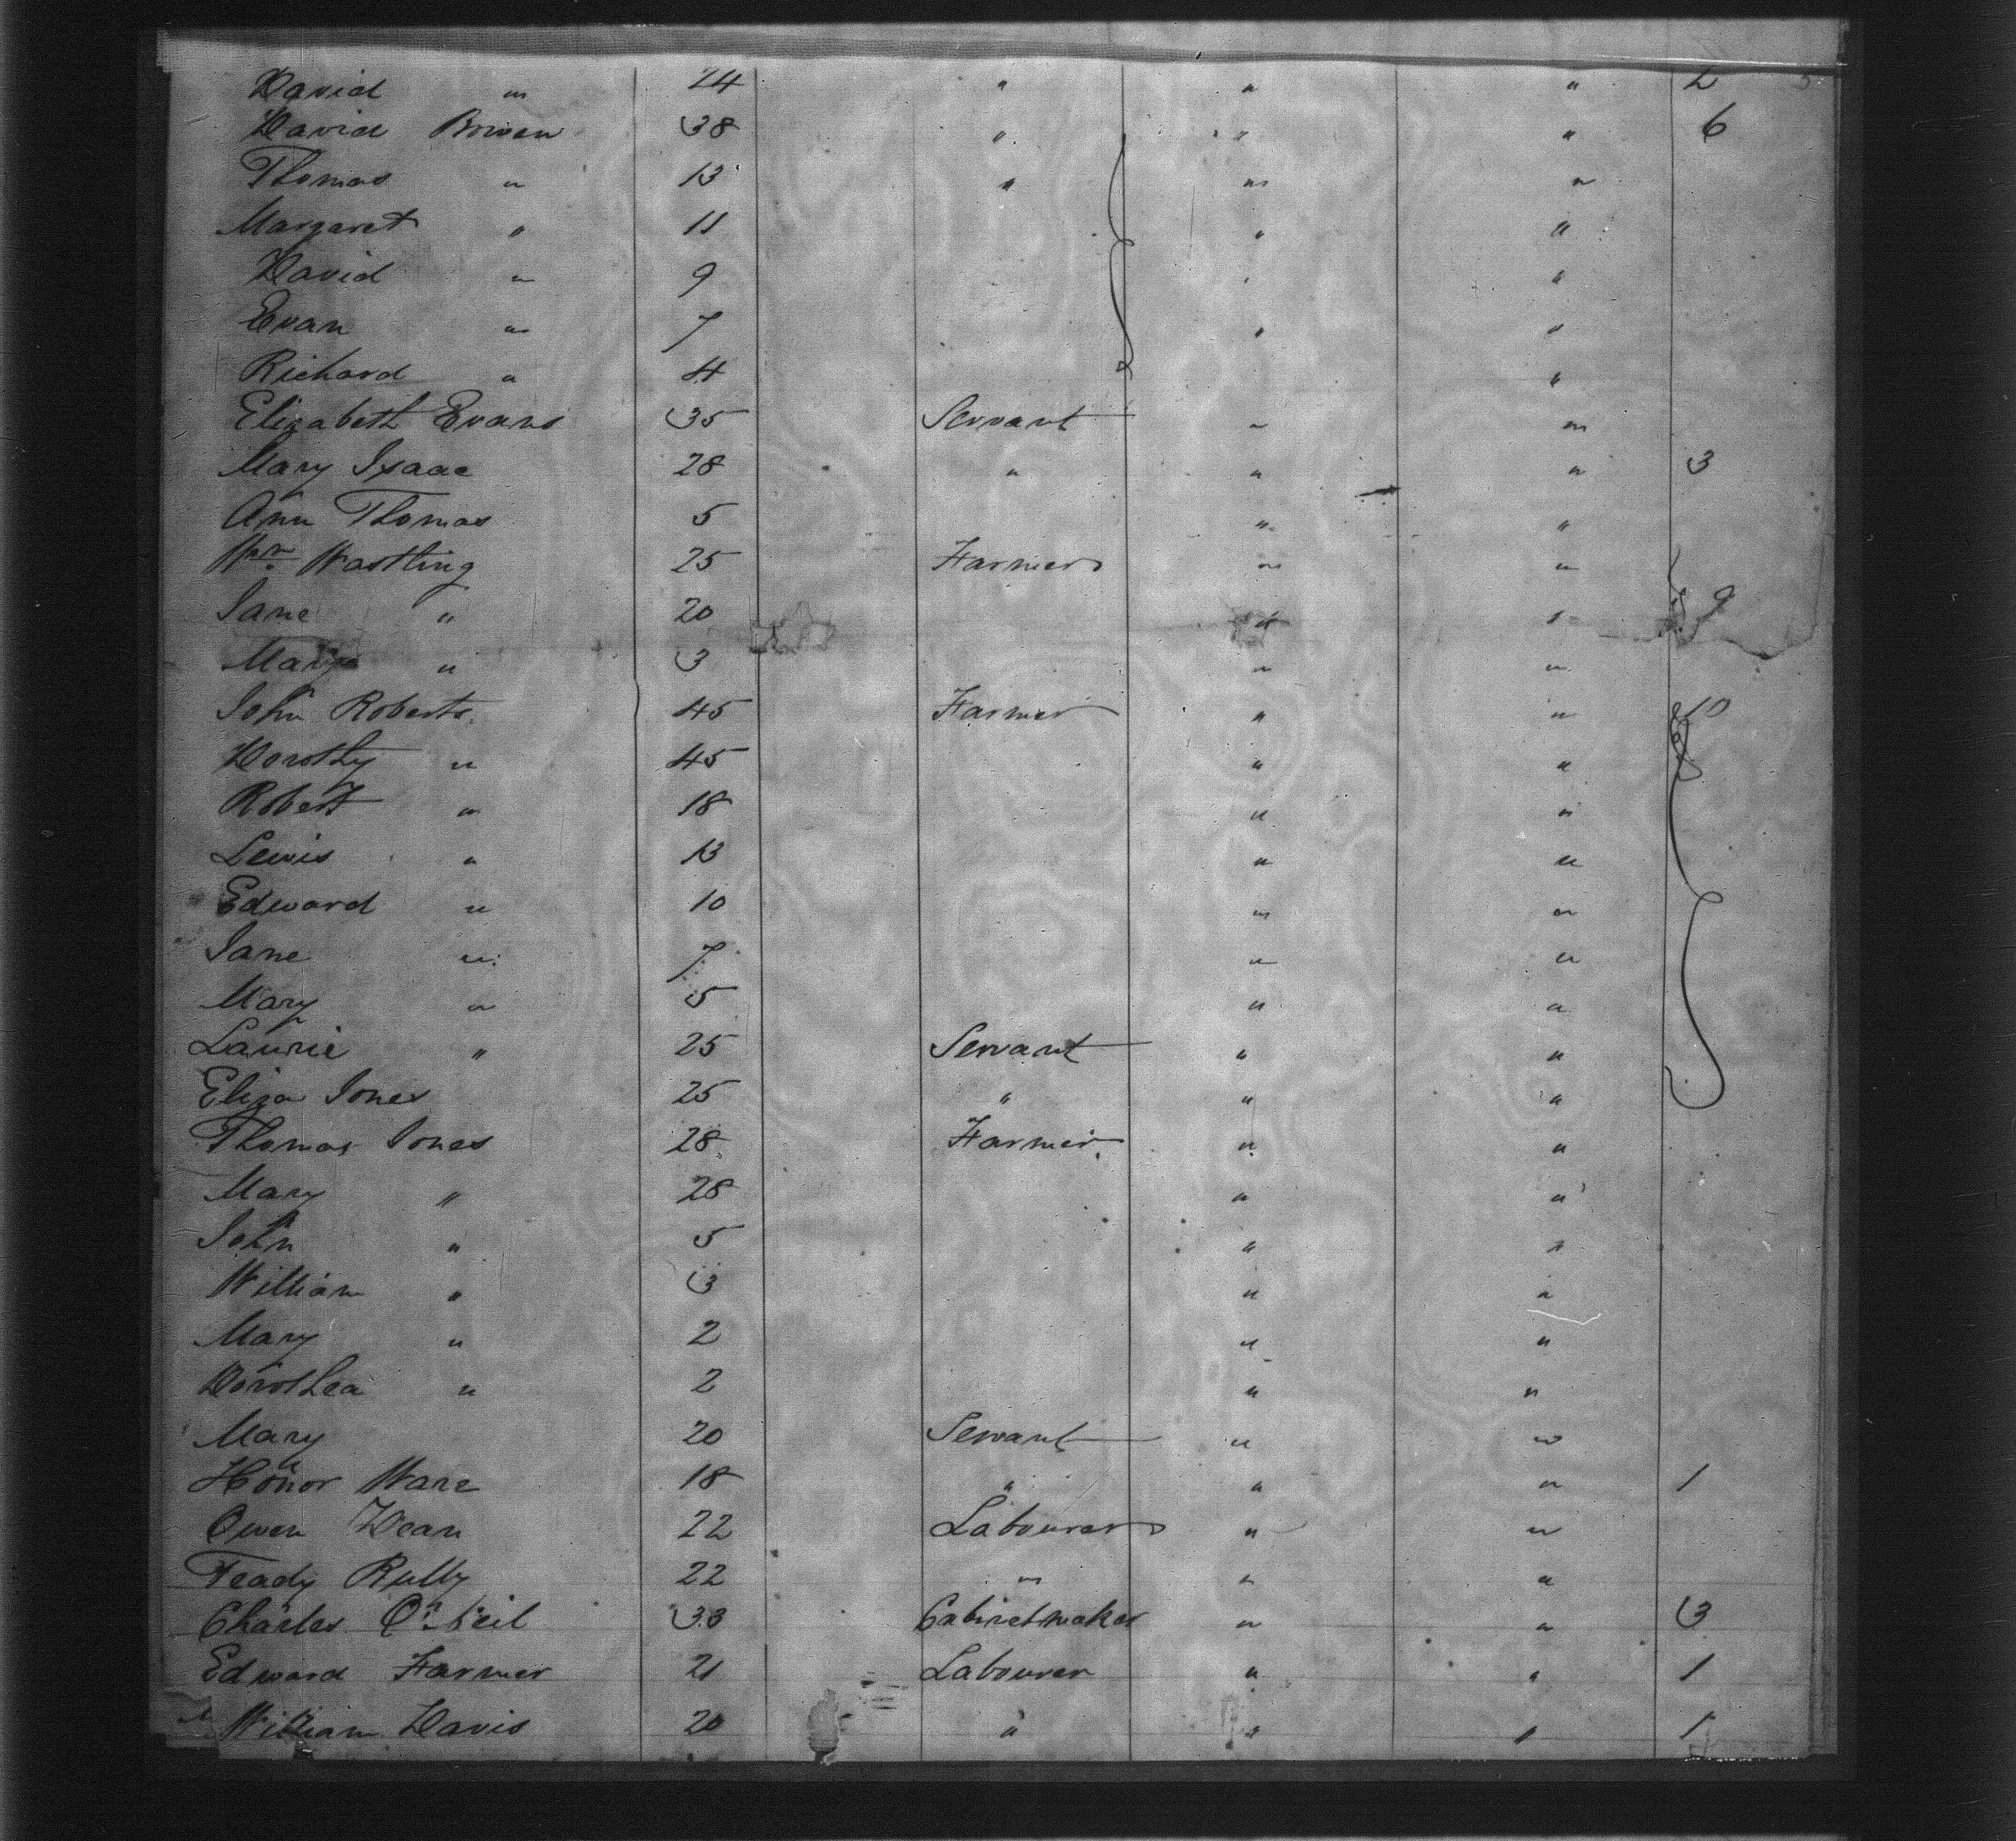 David " 24 " " " 2
David Bowen 38 " " " 6
Thomas " 13 " " "
Margaret " 11 " "
David " 9 " "
Evan " 7 " "
Richard " 4 "
Elizabeth Evans 35 Servant " "
Mary Isaac 28 " " " 3
Ann Thomas 5 " "
Wm. Wastling 25 Farmer " "
Jane " 20 " " 9
Mary " 3 " "
John Roberts 45 Farmer " " 10
Dorothy " 45 " "
Robert " 18 " "
Lewis " 13 " "
Edward " 10 " "
Jane " 7 " "
Mary " 5 " "
Laurie " 25 Servant " "
Eliza Jones 25 " " "
Thomas Jones 28 Farmer " "
Mary " 28 " "
John " 5 " "
William " 3 " "
Mary " 2 " "
Dorothea " 2 " "
Mary 20 Servant " "
Honor Ware 18 " " " 1
Owen Dean 22 Labourer " "
Teady 22 " " "
Charles O'Neil 33 Cabinetmaker " " 3
Edward Farmer 21 Labourer " " 1
William Davis 20 " " " 1